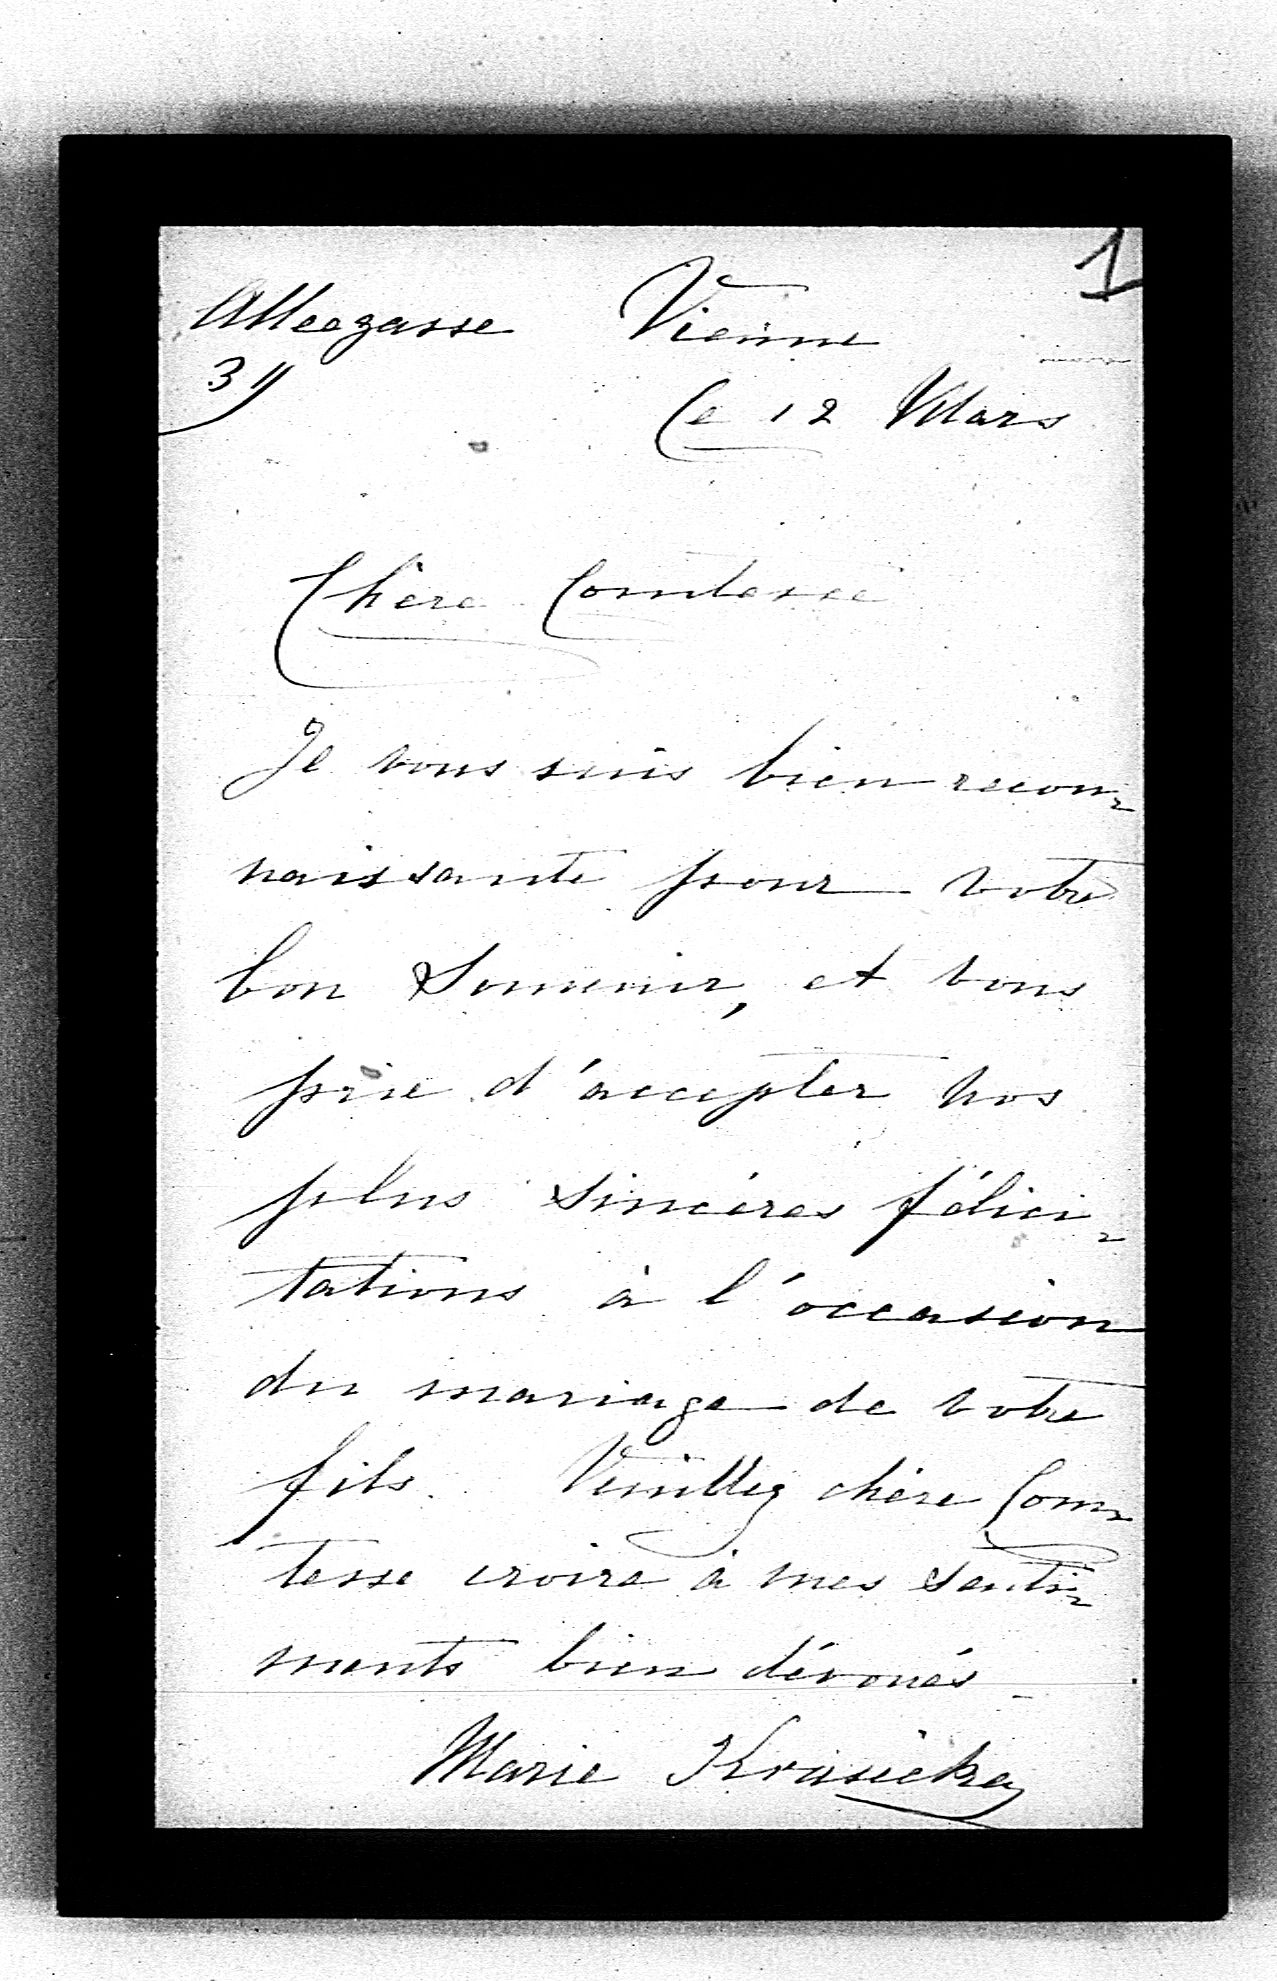 1
Alleegasse Vienne
39
le 12 Mars
Chère Comtesse
Je vous suis bien recon-
naissante pour votre
bon Souvenir, et vous
prie d'accepter nos
plus sincères félici-
tations à l'occasion
du mariage de votre
fils. Veuillez chère Com-
tesse croire à mes senti-
ments bien dévoués -
Marie Krasicka